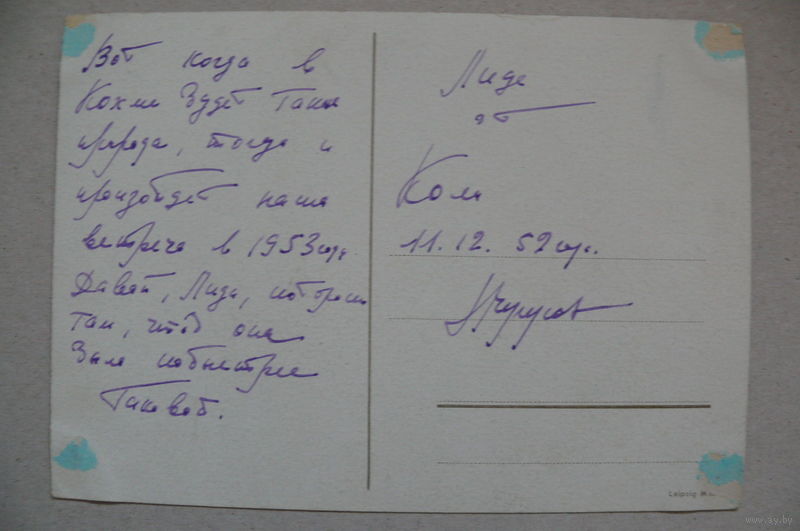 Вот когда в
Кохме будет такая
природа, тогда и
произойдет наша
встреча в 1953 году.
Давай, Лида, поторопим
так, чтоб она
была побыстрее
Таковой.
Лиде
от
Коли
11.12.52 год.
Leipzig M
www.ay.by